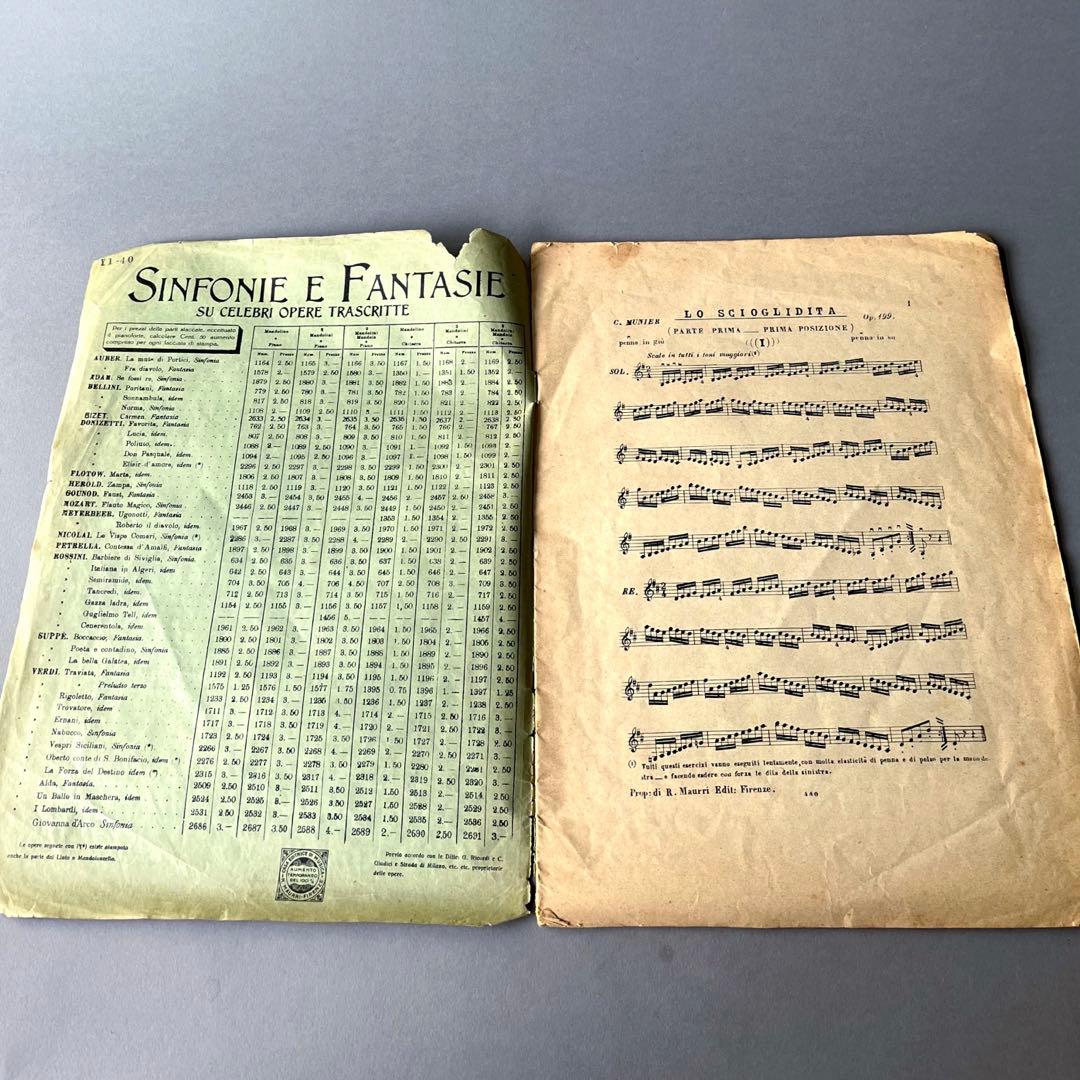 Y1-40
SINFONIE E FANTASIE
SU CELEBRI OPERE TRASCRITTE
Per i prezzi delle parti staccate, eccettuato
il pianoforte, calcolare Cent. 50 aumento
compreso per ogni facciata di stampa.
Mandolino Mandolini Mandolini Mandolino Mandolini Mandolini
Piano Piano Chitarra Chitarra
Num. Prezzo Num. Prezzo Num. Prezzo Num. Prezzo Num. Prezzo Num. Prezzo
AUBER. La muta di Portici, Sinfonia 1164 2.50 1165 3.— 1166 3.50 1167 1.50 1168 2.— 1169 2.50
Fra diavolo, Fantasia 1578 2.— 1579 2.50 1580 3.— 1350 1.— 1351 1.50 1352 2.—
ADAM. Se fossi re, Sinfonia 1879 2.50 1880 3.— 1881 3.50 1882 1.50 1883 2.— 1884 2.50
BELLINI. Puritani, Fantasia 779 2.50 780 3.— 781 3.50 782 1.50 783 2.— 784 2.50
Sonnambula, idem 817 2.50 818 3.— 819 3.50 820 1.50 821 2.— 822 2.50
Norma, Sinfonia 1108 2.— 1109 2.50 1110 1111 1.50 1112 2.— 1113 2.50
BIZET. Carmen, Fantasia 2633 2.50 2634 3.— 2635 3.50 2636 1.50 2637 2.— 2638 2.50
DONIZETTI. Favorita, Fantasia 762 2.50 763 3.— 764 3.50 765 1.50 766 2.— 767 2.50
Lucia, idem. 807 2.50 808 3.— 809 3.50 810 1.50 811 2.— 812 2.50
Poliuto, idem. 1088 2.— 1089 2.50 1090 3.— 1091 1.— 1092 1.50 1093 2.—
Don Pasquale, idem. 1094 2.— 1095 2.50 1096 3.— 1097 1.— 1098 1.50 1099 2.—
Elisir d'amore, idem (*) 2296 2.50 2297 3.— 2298 3.50 2299 1.50 2300 2.— 2301 2.50
FLOTOW. Marta, idem. 1806 2.50 1807 3.— 1808 3.50 1809 1.50 1810 2.— 1811 2.50
HEROLD. Zampa, Sinfonia 1118 2.50 1119 3.— 1120 3.50 1121 1.50 1122 2.— 1123 2.50
GOUNOD. Faust, Fantasia 2453 3.— 2454 3.50 2455 4.— 2456 2.— 2457 2.50 2458 3.—
MOZART. Flauto Magico, Sinfonia 2446 2.50 2447 3.— 2448 3.50 2449 1.50 2450 2.— 2451 2.50
MEYERBEER. Ugonotti, Fantasia 1353 1.50 1354 2.— 1355 2.50
Roberto il diavolo, idem. 1967 2.50 1968 3.— 1969 3.50 1970 1.50 1971 2.— 1972 2.50
NICOLAI. Le Vispe Comari, Sinfonia (*) 2286 3.— 2287 3.50 2288 4.— 2289 2.— 2290 2.50 2291 3.—
PETRELLA. Contessa d'Amalfi, Fantasia 1897 2.50 1898 3.— 1899 3.50 1900 1.50 1901 2.— 1902 2.50
ROSSINI. Barbiere di Siviglia, Sinfonia. 634 2.50 635 3.— 636 3.50 637 1.50 638 2.— 639 2.50
Italiana in Algeri, idem 642 2.50 643 3.— 644 3.50 645 1.50 646 2.— 647 2.50
Semiramide, idem. 704 3.50 705 4.— 706 4.50 707 2.50 708 3.— 709 3.50
Tancredi, idem. 712 2.50 713 3.— 714 3.50 715 1.50 716 2.— 717 2.50
Gazza ladra, idem 1154 2.50 1155 3.— 1156 3.50 1157 1,50 1158 2.— 1159 2.50
Guglielmo Tell, idem 1456 5.— 1457 4.—
Cenerentola, idem 1961 2.50 1962 3.— 1963 3.50 1964 1.50 1965 2.— 1966 2.50
SUPPÉ. Boccaccio, Fantasia. 1800 2.50 1801 3.— 1802 3.50 1803 1.50 1804 2.— 1805 2.50
Poeta e contadino, Sinfonia 1885 2.50 1886 3.— 1887 3.50 1888 1.50 1889 2.— 1890 2.50
La bella Galatea, idem 1891 2.50 1892 3.— 1893 3.50 1894 1.50 1895 2.— 1896 2.50
VERDI. Traviata, Fantasia 1192 2.50 1193 3.— 1194 3.50 1195 1.50 1196 2.— 1197 2.50
Preludio terzo 1575 1.25 1576 1.50 1577 1.75 1395 0.75 1396 1.— 1397 1.25
Rigoletto, Fantasia 1233 2.50 1234 3.— 1235 3.50 1236 1.50 1237 2.— 1238 2.50
Trovatore, idem 1711 3.— 1712 3.50 1713 4.— 1714 2.— 1715 2.50 1716 3.—
Ernani, idem 1717 3.— 1718 3.50 1719 4.— 1720 2.— 1721 2.50 1722 3.—
Nabucco, Sinfonia 1723 2.50 1724 3.— 1725 3.50 1726 1.50 1727 2.— 1728 2.50
Vespri Siciliani, Sinfonia (*). 2266 3.— 2267 3.50 2268 4.— 2269 2.— 2270 2.50 2271 3.—
Oberto conte di S. Bonifacio, idem (*) 2276 2.50 2277 3.— 2278 3.50 2279 1.50 2280 2.— 2281 2.50
La Forza del Destino idem (*) 2315 3.— 2316 3.50 2317 4.— 2318 2.— 2319 2.50 2320 3.—
Aida, Fantasia. 2509 2.50 2510 3.— 2511 3.50 2512 1.50 2513 2.— 2514 2.50
Un Ballo in Maschera, idem 2524 2.50 2525 3.— 2526 3.50 2527 1.50 2528 2.— 2529 2.50
I Lombardi, idem 2531 2.50 2532 3.— 2533 3.50 2534 1.50 2535 2.— 2536 2.50
Giovanna d'Arco Sinfonia 2686 3.— 2687 3.50 2688 4.— 2689 2.— 2690 2,50 2691 3.—
Le opere segnate con l'(*) esiste stampata
anche la parte del Liuto e Mandoloncello.
Previo accordo con le Ditte: G. Ricordi e C.
Giudici e Strada di Milano, etc. etc. proprietarie
delle opere.
CASA EDITRICE DI MUSICA
AUMENTO
TEMPORANEO
DEL 100%
MAURRI-FIRENZE
1
LO SCIOGLIDITA
C. MUNIER Op. 199.
(PARTE PRIMA — PRIMA POSIZIONE)
penna in giù (((I))) penna in su
Scale in tutti i toni maggiori(1)
SOL.
RE.
(1) Tutti questi esercizi vanno eseguiti lentamente, con molta elasticità di penna e di polso per la mano de-
stra — e facendo cadere con forza le dita della sinistra.
Prop: di R. Maurri Edit: Firenze. 480